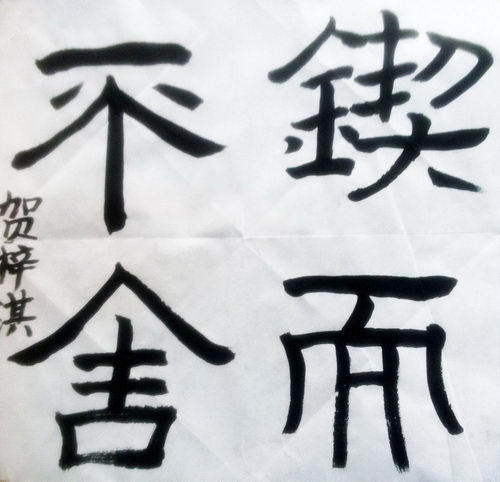 锲而
不舍
贺梓淇